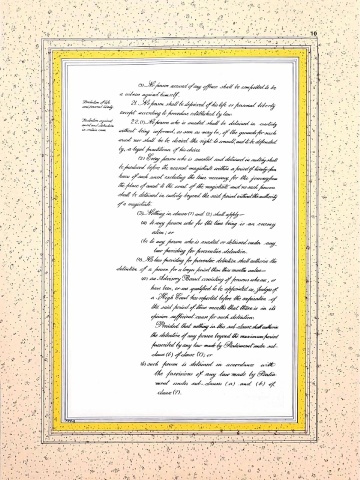 10
(3). No person accused of any offence shall be compelled to be
a witness against himself.
Protection of life
and personal liberty.
21. No person shall be deprived of his life or personal liberty
except according to procedure established by law.
Protection against
arrest and detention
in certain cases.
22. (1). No person who is arrested shall be detained in custody
without being informed, as soon as may be, of the grounds for such
arrest nor shall he be denied the right to consult, and to be defended
by, a legal practitioner of his choice.
(2) Every person who is arrested and detained in custody shall
be produced before the nearest magistrate within a period of twenty-four
hours of such arrest excluding the time necessary for the journey from
the place of arrest to the court of the magistrate and no such person
shall be detained in custody beyond the said period without the authority
of a magistrate.
(3). Nothing in clauses (1) and (2) shall apply—
(a) to any person who for the time being is an enemy
alien; or
(b) to any person who is arrested or detained under any
law providing for preventive detention.
(4). No law providing for preventive detention shall authorise the
detention of a person for a longer period than three months unless—
(a) an Advisory Board consisting of persons who are, or
have been, or are qualified to be appointed as, Judges of
a High Court has reported before the expiration of
the said period of three months that there is in its
opinion sufficient cause for such detention:
Provided that nothing in this sub-clause shall authorise
the detention of any person beyond the maximum period
prescribed by any law made by Parliament under sub-
clause (b) of clause (7); or
(b) such person is detained in accordance with
the provisions of any law made by Parlia-
ment under sub-clauses (a) and (b) of
clause (7).